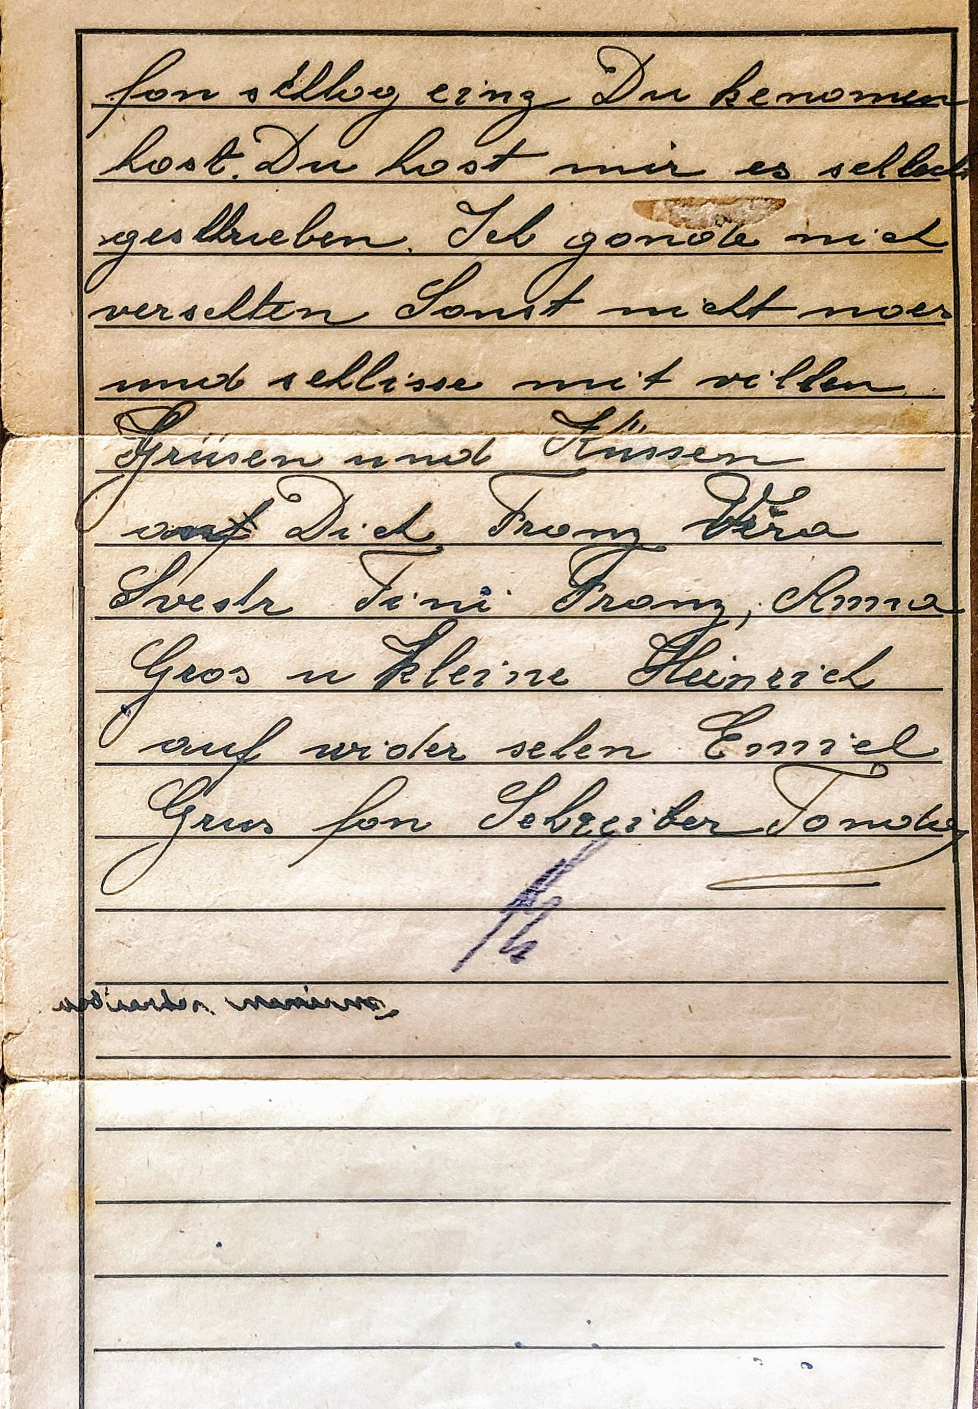 fon selbog einz Du kenomen
host. Du host mir es
geschrieben. Ich nich
verselten Sonst nicht noer
und schlisse mit villen
Grüsen und Küssen
auf Dich Franz Vera
Svestr Tini Franz, Anna
Gros u kleine Heinrich
auf wider sehen Emiel
Grus fon Schreiber Tonda